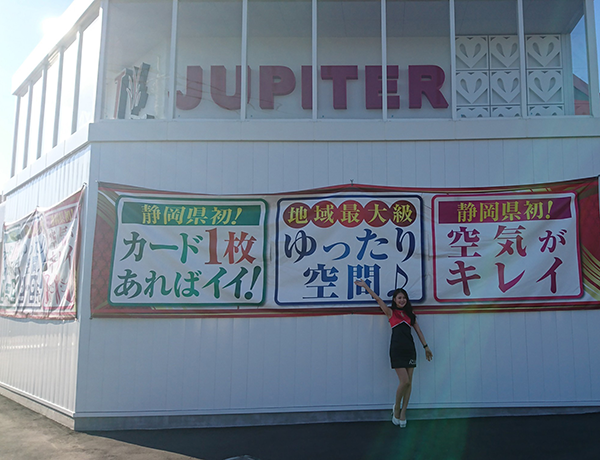 JUPITER
静岡県初!
カード1枚
あればイイ!
地域最大級
ゆったり
空間♪
静岡県初!
空気が
キレイ